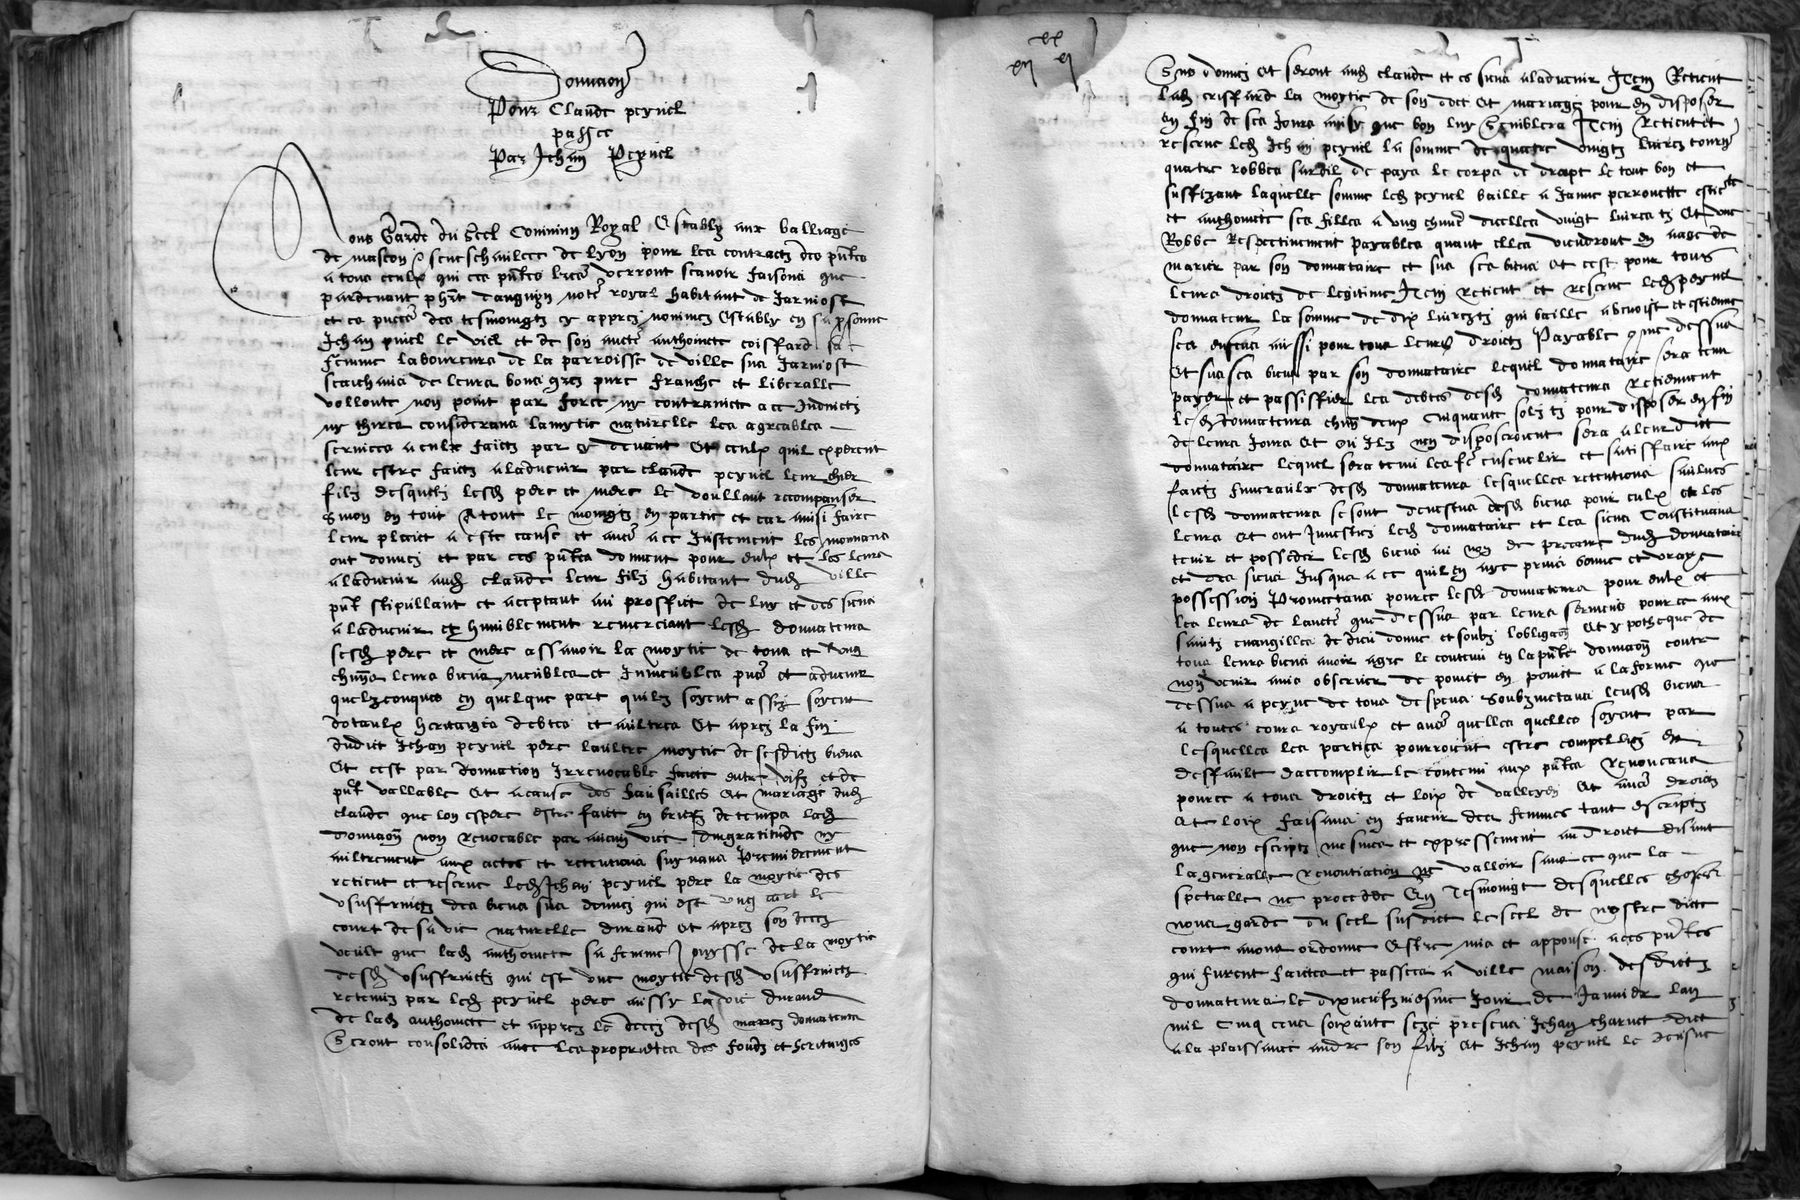 Donnaon
Pour Claude peynel
passee
Par Jehan Peynel
Nous Garde du Seel Commun Royal Establiz aux balliage
de mascon seneschaulcee de lyon pour les contractz des pntes
a tous ceulx qui ces pntes lres verront scavoir faisons que
pardevant notre royal habitant de Jarniost
et es puees des tesmoingtz cy appres nommez Estably en sa personne
Jehan peynel le viel et de son aucte anthoinete coiffard sa
femme laboureurs de la parroisse de ville sur Jarniost
scaichans de leurs bons grez pure franche et liberalle
vollonte non point par force ny contraincte a ce Induictz
ny thirez considerans lamytie naturelle les agreables
services a eulx faictz par cy devant Et ceulx quil experent
leur estre faictz a ladvenir par claude peynel leur cher
filz desquelz lesd pere et mere le voullant recompanser
Sinon en tout A tout le moingtz en partie et car ainsi faire
leur plaict a este cause et autre a ce Justement les mouvans
ont donnez et par ces pntes donnent pour eulx et les leurs
a ladvenir aud claude leur filz habitant dud ville
pnt stipullant et acceptant au proffict de luy et des siens
a ladvenir et humblement remerciant lesd donnateurs
sesd pere et mere assavoir la moytie de tous et ung
chuns leurs biens meubles et Inmeubles pns et advenir
quelzconques en quelque part quilz soyent assiz soyent
dotaulx heritaiges debtes et aultres Et apres la fin
dudict Jehan peynel pere laultre moytie de sesdictz biens
Et cest par donnation Irrevocable faicte entre vifz et de
pnt vallable Et a cause des fiansailles Et mariaige dud
claude que lon espere estre faict en briefz de temps lad
donnaon non revocable par aucun vice dingratitude ny
aultrement aux actes et retentions suyvans Premierement
retient et reserve led Jehan peynel pere la moytie des
usuffruictz des biens sus donnez qui est ung cart le
court de sa vie naturelle durand Et apres son deces
veult que lad anthoinete sa femme Jouysse de la moytie
desd usuffruictz qui est une moytie desd usuffruictz
retenuz par led peynel pere aussy la vie durand
de lad anthoinete et appres le deces desd mariez donnateurs
Seront consolidees avec les proprietes des fondz et heritaiges
Sus donnez Et seront aud claude et es siens a ladvenir Item Retient
lad coiffard la moytie de son doct Et mariaige pour en disposer
en fin de ses Jours ainsy que bon luy Semblera Item Retient et
reserve led Jehan peynel la somme de quatre vingtz livres tourn
quatre robbes de paye le corps de drapt le tout bon et
suffizant laquelle somme led peynel baille a Janne perronette estiete
et anthoinete ses filles a ung chune dicelles vingt livres tz Et une
Robbe Respectivement payables quant elles viendront en aage de
marier par son donnataire et sus ses biens Et cest pour tous
leurs droictz de legitime Item retient et reserve led peynel
donnateur la somme de dix livres tz qui baille a benoist et estienne
ses enfens aussi pour tous leurs droictz Payable comme dessus
Et sus ses biens par son donnataire lequel donnataire sera tenu
payer et passiffier les debtes desd donnateurs retiennent
lesd donnateurs chun deux cinquante solz tz pour disposer en fin
de leurs Jours Et ou Ilz non disposeroient sera a leurdict
donnataire lequel sera tenu les fe ensevelir et satisffaire aux
faictz funeraulx desd donnateurs lesquelles retentions saulves
lesd donnateurs se sont devestus desd biens pour eulx et les
leurs Et ont Investuz led donnataire et les siens Constituans
tenir et posseder lesd biens au nom de precaire dud donnataire
et des siens Jusques a ce quil en aye prins bonne et vraye
possession Promectans pource lesd donnateurs pour eulx et
les leurs de laucte que dessus par leurs sermens pource aux
sainctz evangilles de dieu donne et soubz lobligaon Et ypotheque de
tous leurs biens avoir agre le contenu en la pnte donnaon contre
non venir ains observer de poinct en poinct a la forme que
dessus a peyne de tous despens Soubzmectans leursd biens
a toutes cours royaulx et autres quelles quelles soyent par
lesquelles les parties pourroient estre compelliz en
deffault daccomplir le contenu aux pntes Renoncans
pource a tous droictz et loix de Et autres droictz
Et loix faisans en faveur des femmes tant escriptz
que non escriptz mesmes et expressement au droict disant
la generalle renontiation ne valloir sinon ce que la
specialle ne precede En Tesmoing desquelles choses
nous garde du seel susdict le seel de nostre dicte
court avons ordonne Estre mis et appouse a ces pntes
qui furent faictes et passees a ville maison desdictz
donnateurs le dixneufziesme Jour de Janvier lan
mil cinq cens soixante seze presens Jehan charvet dict
a la plaissance andre son filz Et Jehan peynel le Jeusne